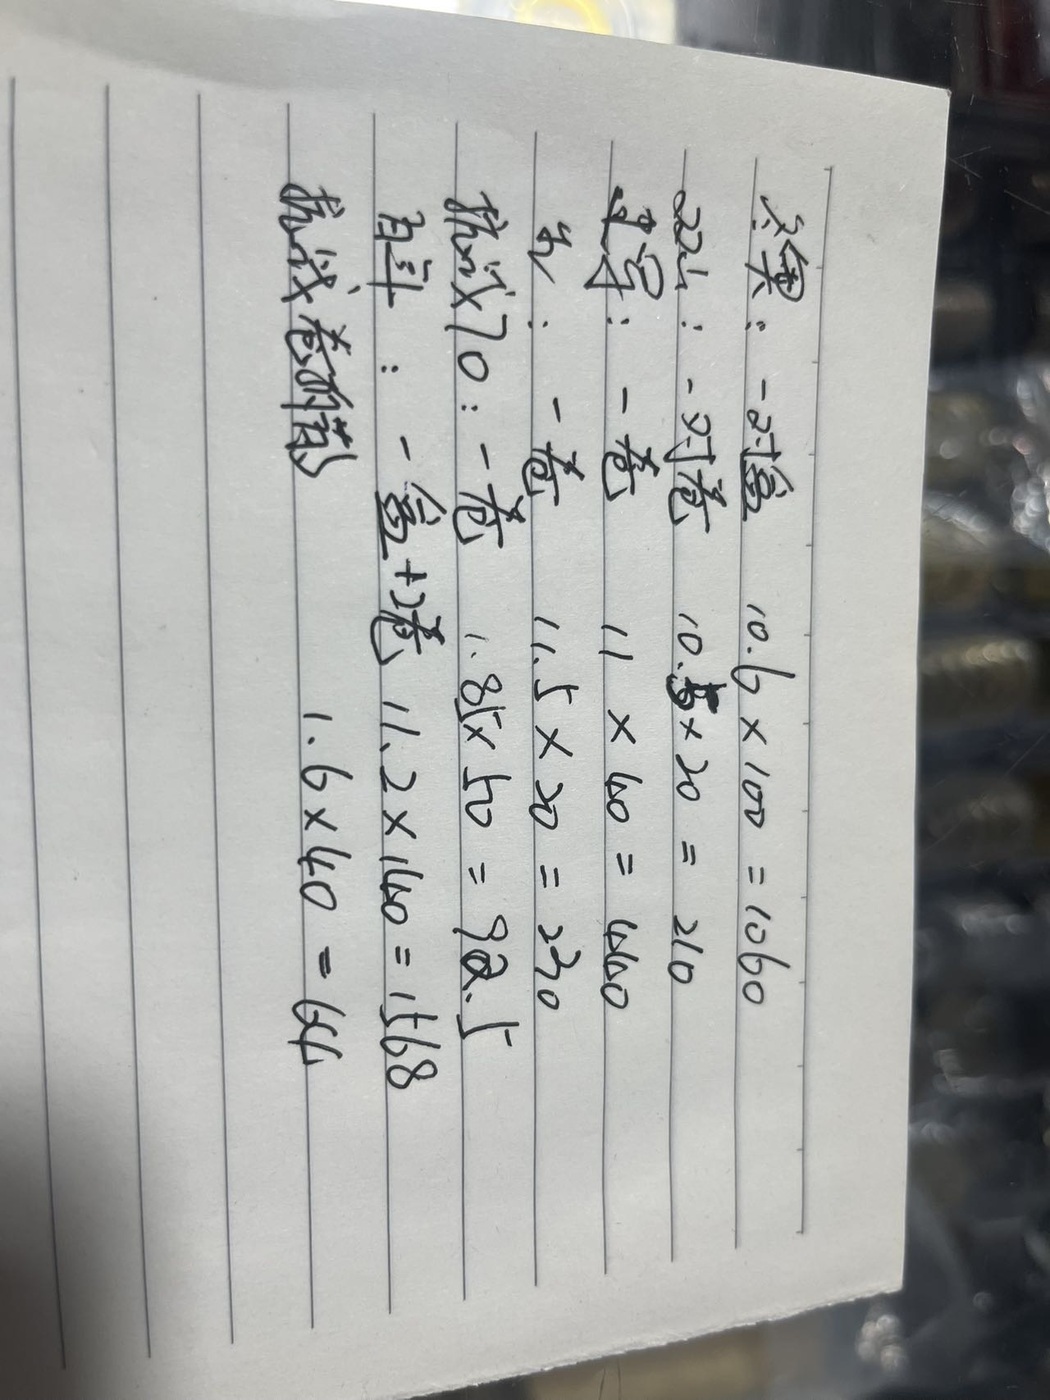 冬奥：一对盒 10.6×100 = 1060
224：一对卷 10.5×20 = 210
建军：一卷 11×40 = 440
：一卷 11.5×20 = 230
抗战70：一卷 1.85×50 = 92.5
：一盒+2卷 11.2×140 = 1568
抗战卷拆的 1.6×40 = 64